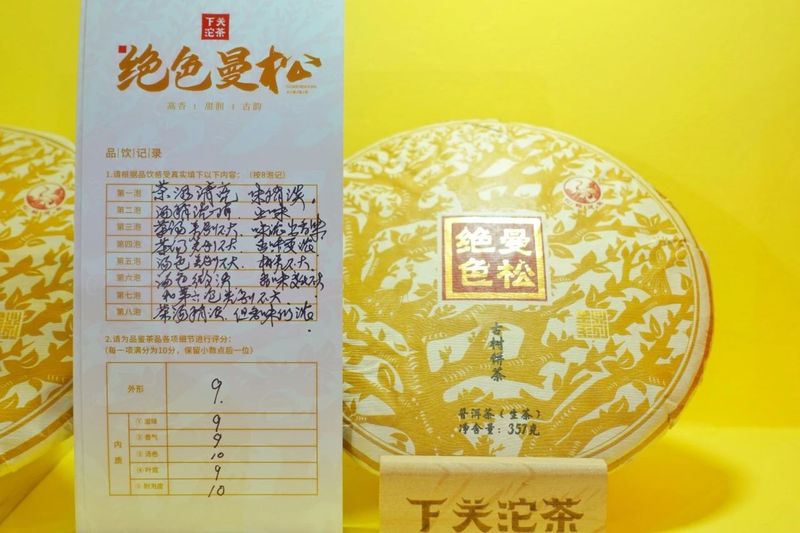 下关
沱茶
绝色曼松
高香 | 甜润 | 古韵
品|饮|记|录
1.请根据品饮感受真实填下以下内容：（按8泡记）
第一泡 茶汤清亮 味稍淡。
第二泡
第三泡 茶汤差别不大、
第四泡 茶汤差别不大、香味更浓
第五泡 汤色差别不大、
第六泡 汤色微淡 香味变化不大
第七泡 和第六泡差别不大、
第八泡 茶汤稍淡、但香味仍浓。
2.请为品鉴茶品各项细节进行评分：
（每一项满分为10分，保留小数点后一位）
外形 9.
内质
①滋味 9
②香气 9
③汤色 10
④叶底 9
⑤耐泡度 10
曼松
绝色
古树饼茶
普洱茶（生茶）
净含量：357克
下关沱茶